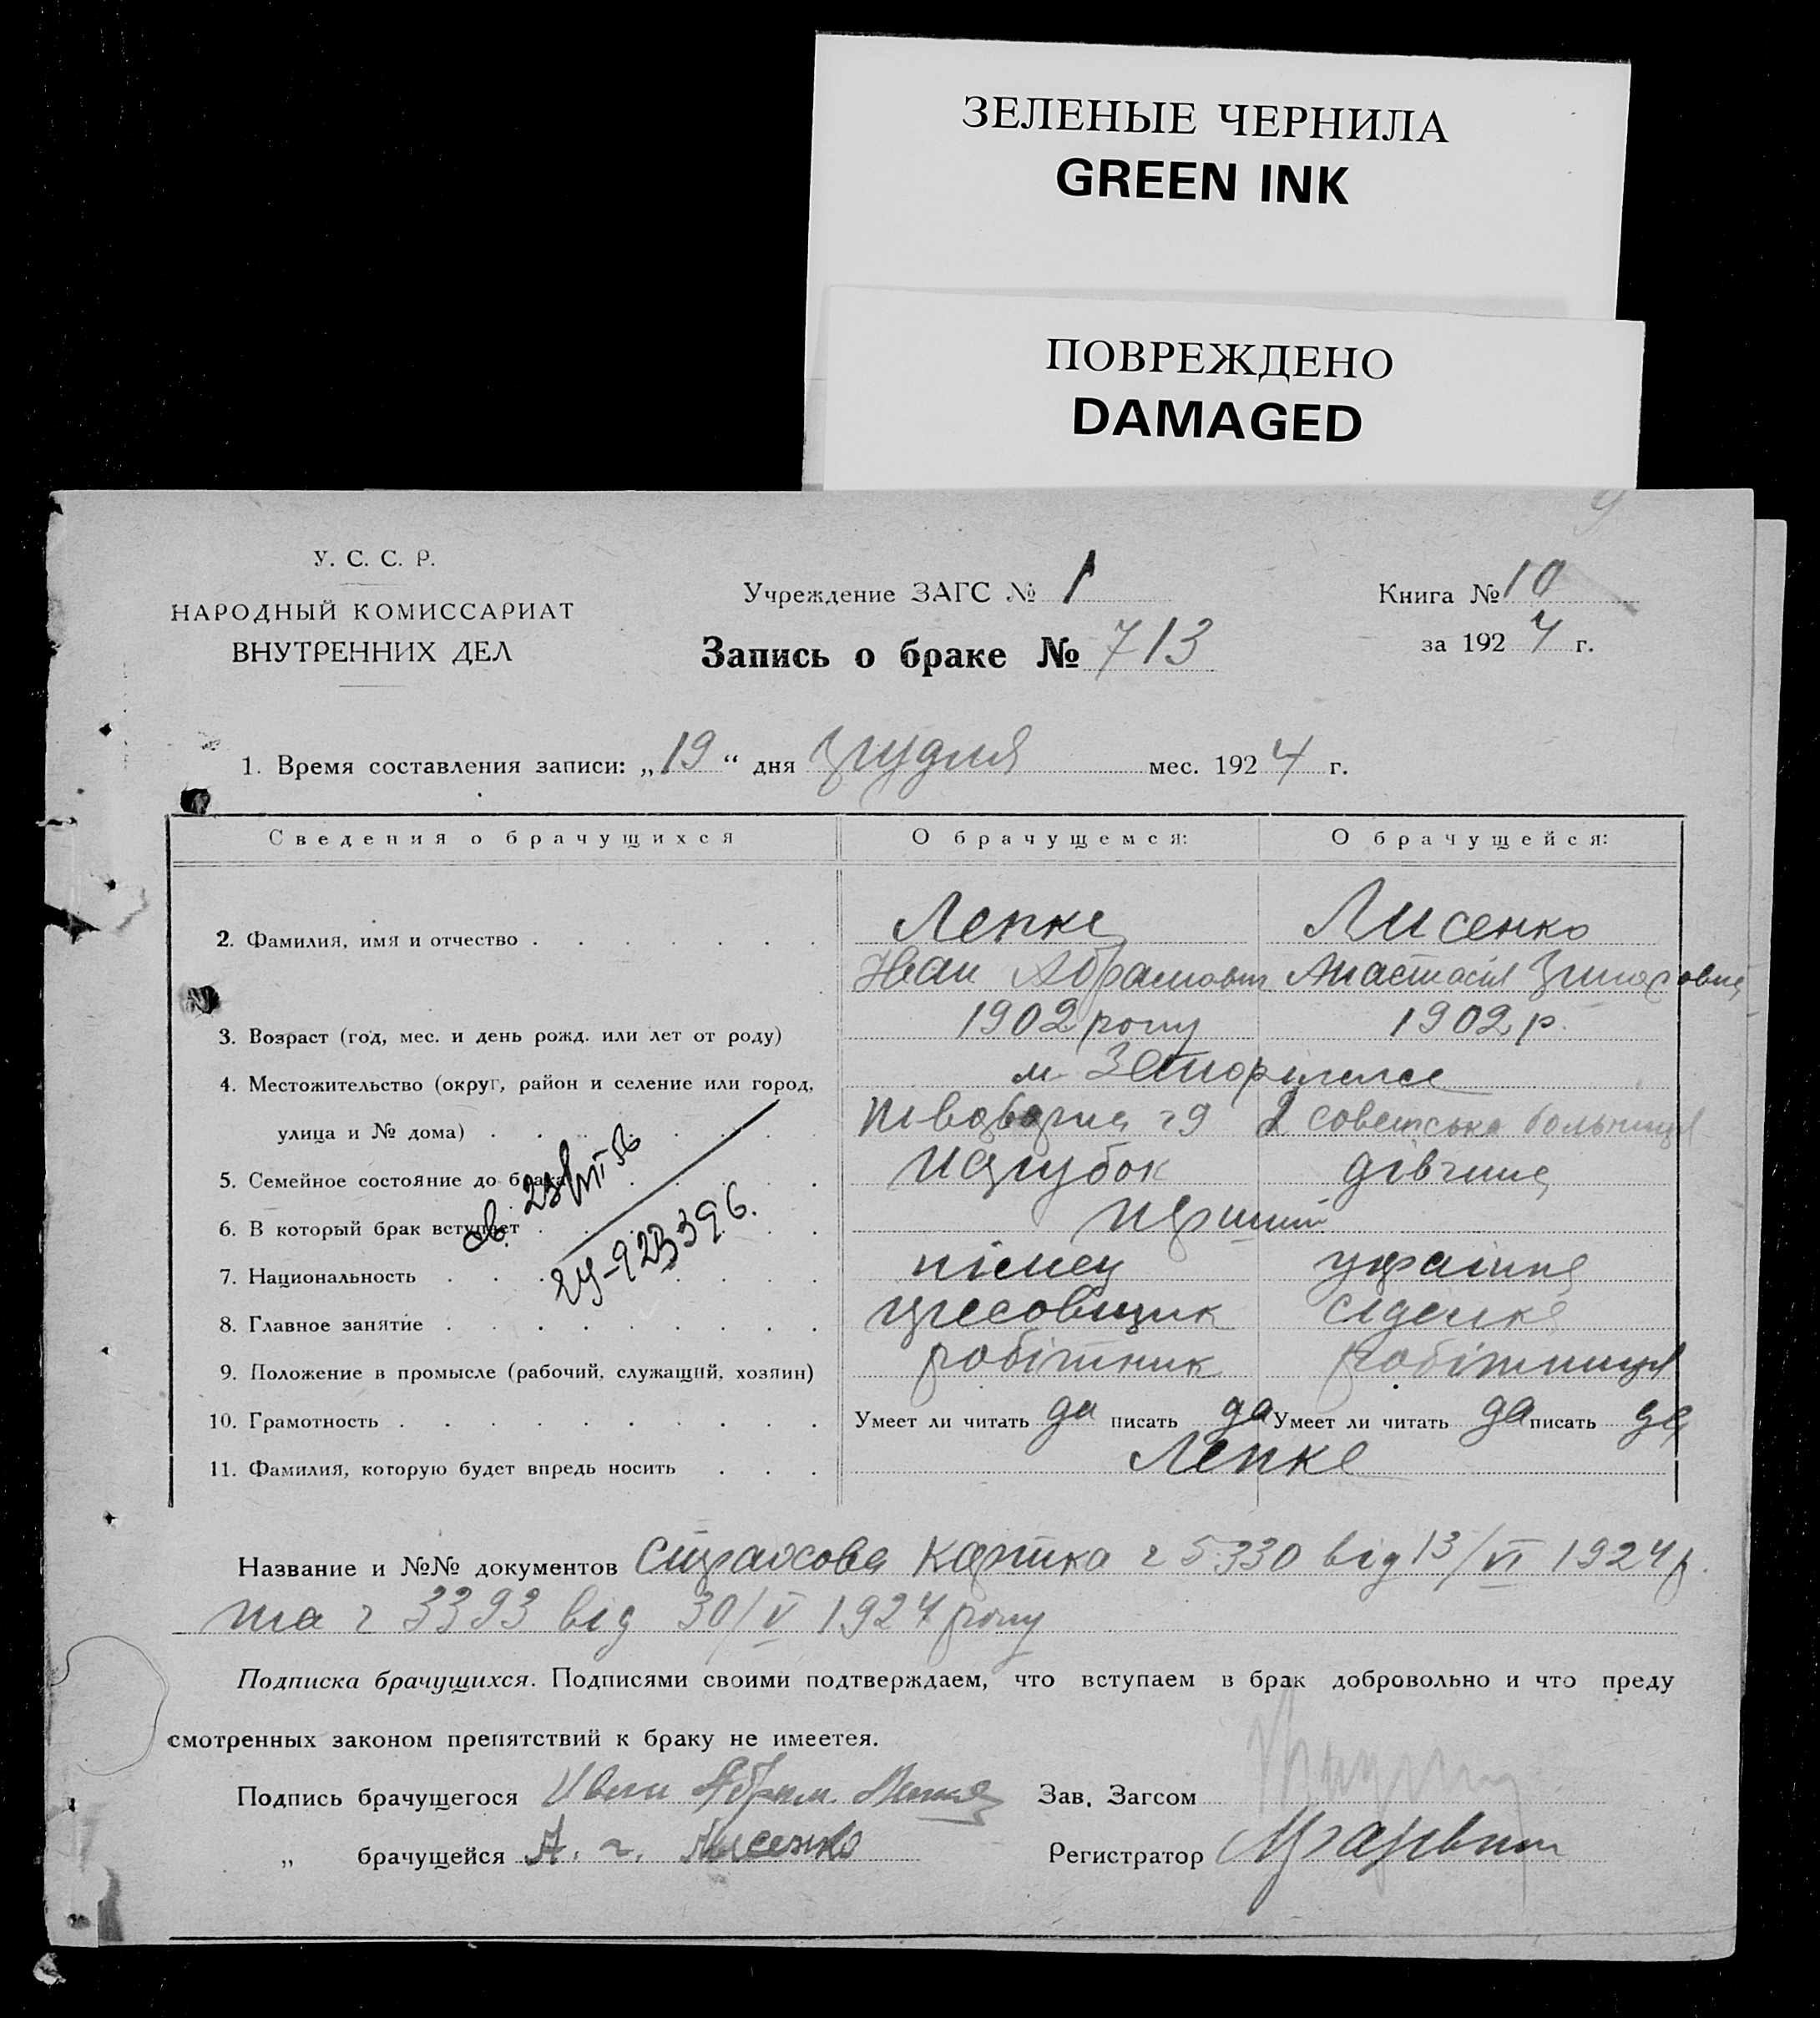 ЗЕЛЕНЫЕ ЧЕРНИЛА
GREEN INK
ПОВРЕЖДЕНО
DAMAGED
У. С. С. Р.
НАРОДНЫЙ КОМИССАРИАТ
ВНУТРЕННИХ ДЕЛ
Учреждение ЗАГС № 1
Запись о браке № 713
Книга № 10
за 1924 г.
1. Время составления записи: „19“ дня грудня мес. 1924 г.
Сведения о брачущихся О брачущемся: О брачущейся:
2. Фамилия, имя и отчество Лепке Лисенко
Иван Абрамович Анастасія
3. Возраст (год, мес. и день рожд. или лет от роду) 1902 року 1902 р.
4. Местожительство (округ, район и селение или город, м. Запоріжжє
улица и № дома) 2 советська больниця
5. Семейное состояние до брака парубок дівчина
6. В который брак вступает перший
7. Национальность німец українка
8. Главное занятие сиделка
9. Положение в промысле (рабочий, служащий, хозяин) робітник робітниця
10. Грамотность Умеет ли читать да писать да Умеет ли читать да писать да
11. Фамилия, которую будет впредь носить Лепке
Название и №№ документов Страхова картка ч 5330 від 13/VI 1924 р.
та ч 3393 від 30/V 1924 року
Подписка брачущихся. Подписями своими подтверждаем, что вступаем в брак добровольно и что преду
смотренных законом препятствий к браку не имеется.
Подпись брачущегося Иван Абрам. Лепке Зав. Загсом
„ брачущейся А. Г. Лисенко Регистратор